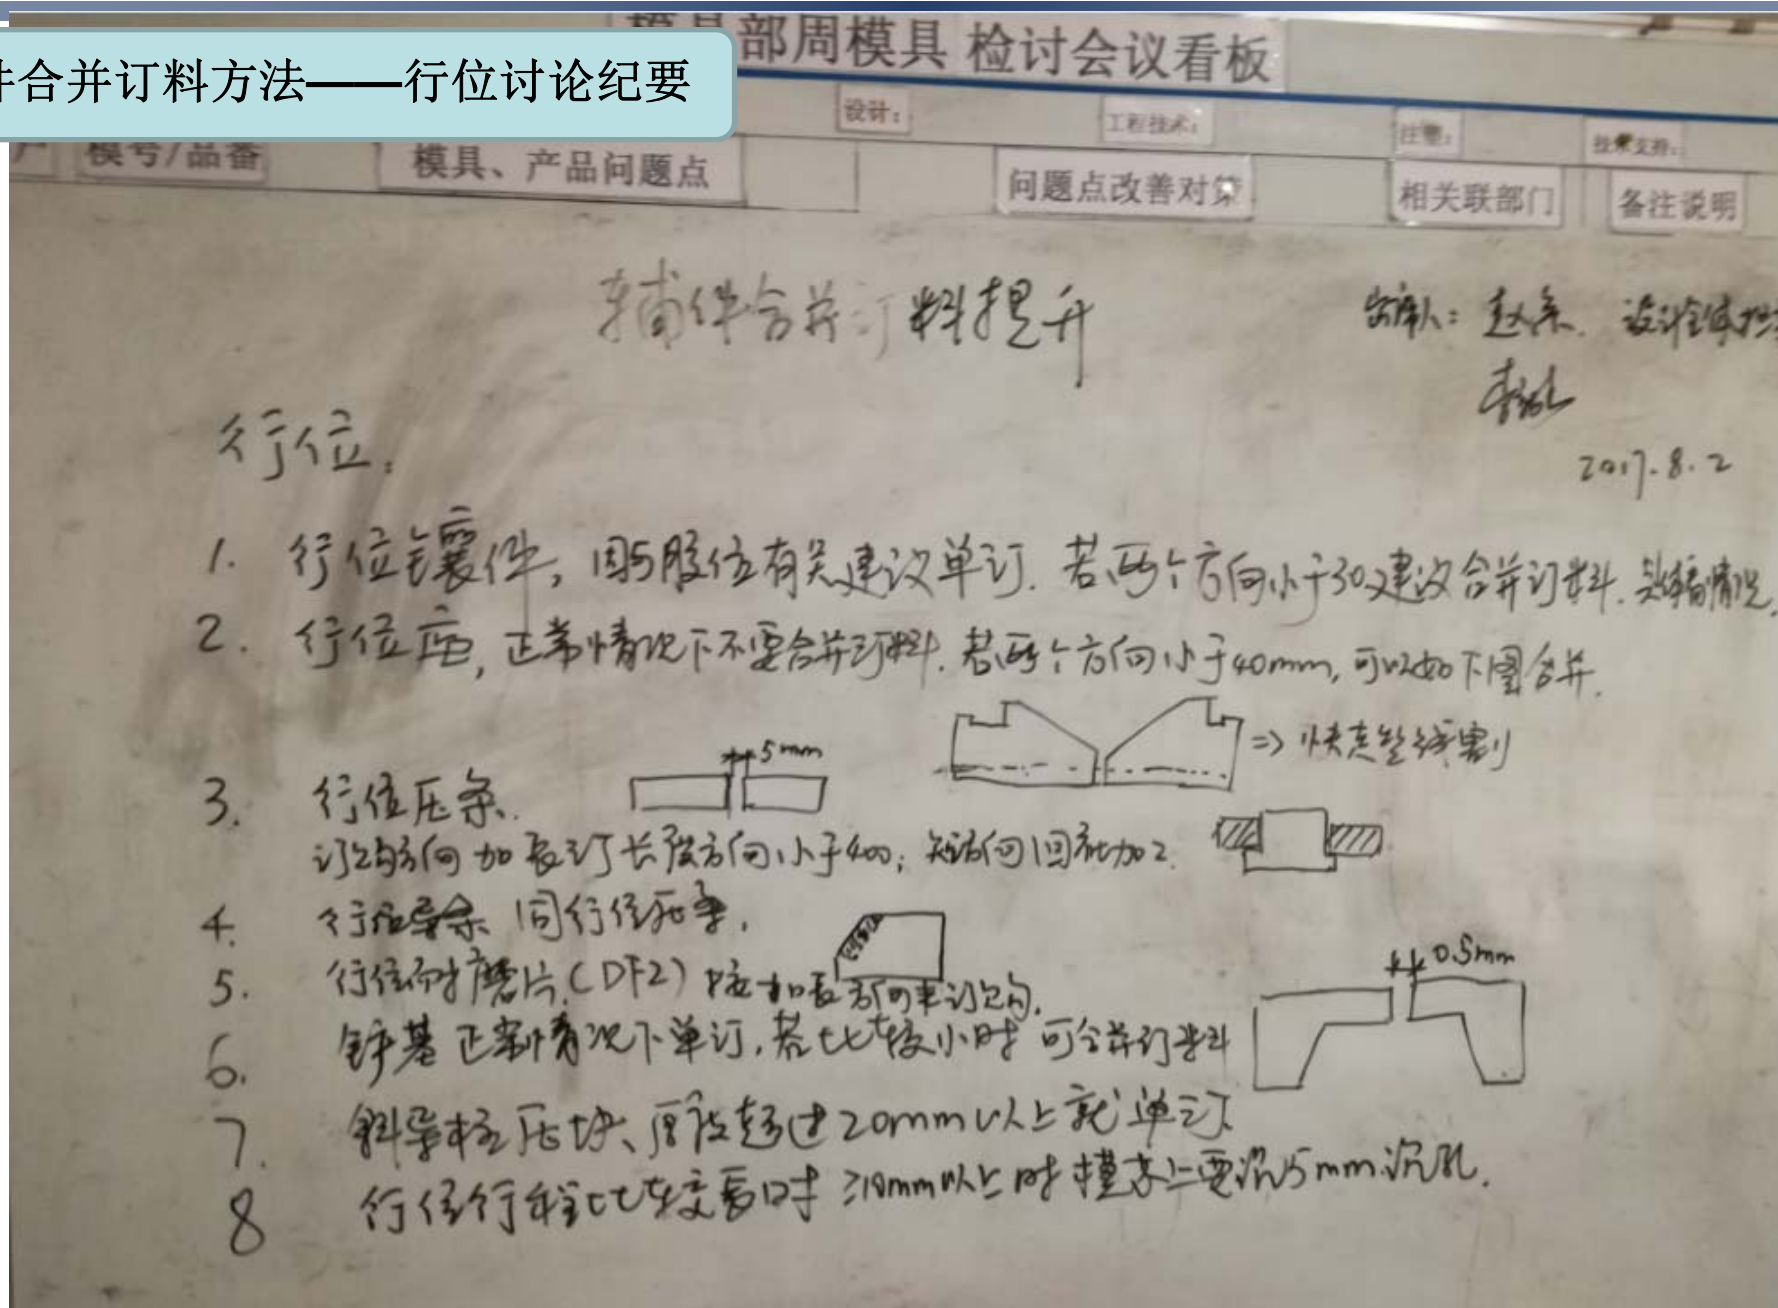 部周模具 检讨会议看板
合并订料方法——行位讨论纪要
设计：
工程技术：
注塑：
技术支持：
模号/品番
模具、产品问题点
问题点改善对策
相关联部门
备注说明
辅件合并订料提升
2017.8.2
行位：
1. 行位镶件，因与胶位有关建议单订. 若两个方向小于30建议合并订料. 情况.
2. 行位座，正常情况下不要合并订料. 若两个方向小于40mm，可以如下图合并.
5mm
=> 快走丝线割
3. 行位压条.
方向加长订 长度方向小于400；短方向
4. 行位导条 同行位压条.
5. 行位耐磨片.(DF2) 按加长方向来订
0.5mm
6. 铲基 正常情况下单订，若比较小时 可合并订料
7. 斜导柱压块、厚度超过20mm以上就单订.
8 行位行程比较长时 ≥10mm以上时 模 上要沉5mm沉孔.